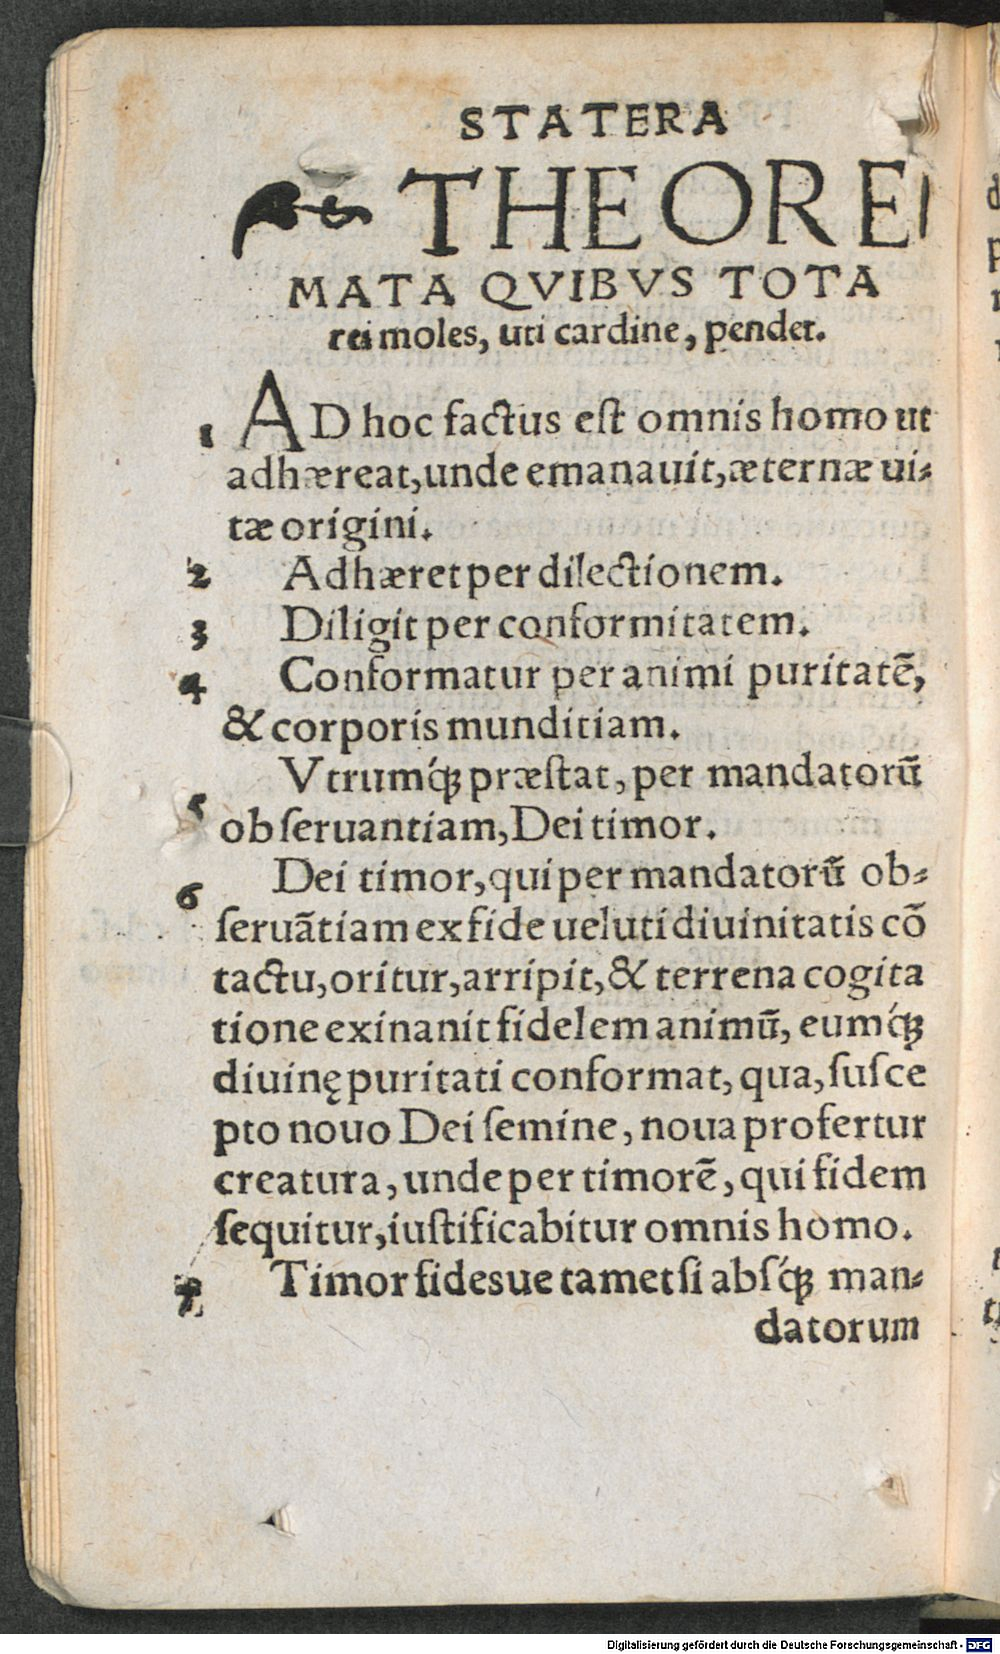 STATERA
THEORE
MATA QVIBVS TOTA
rei moles, uti cardine, pendet.
1 AD hoc factus est omnis homo ut
adhæreat, unde emanauit, æternæ ui⸗
tæ origini.
2 Adhæret per dilectionem.
3 Diligit per conformitatem.
4 Conformatur per animi puritatē,
& corporis munditiam.
Vtrumq́ꝫ præſtat, per mandatorū
5 obſeruantiam, Dei timor.
6 Dei timor, qui per mandatorū ob⸗
ſeruātiam ex fide ueluti diuinitatis cō
tactu, oritur, arripit, & terrena cogita
tione exinanit fidelem animū, eumq́ꝫ
diuinę puritati conformat, qua, ſuſce
pto nouo Dei ſemine, noua profertur
creatura, unde per timorē, qui fidem
ſequitur, iuſtificabitur omnis homo.
7 Timor fidesue tametſi abſq́ꝫ man⸗
datorum
Digitalisierung gefördert durch die Deutsche Forschungsgemeinschaft - DFG